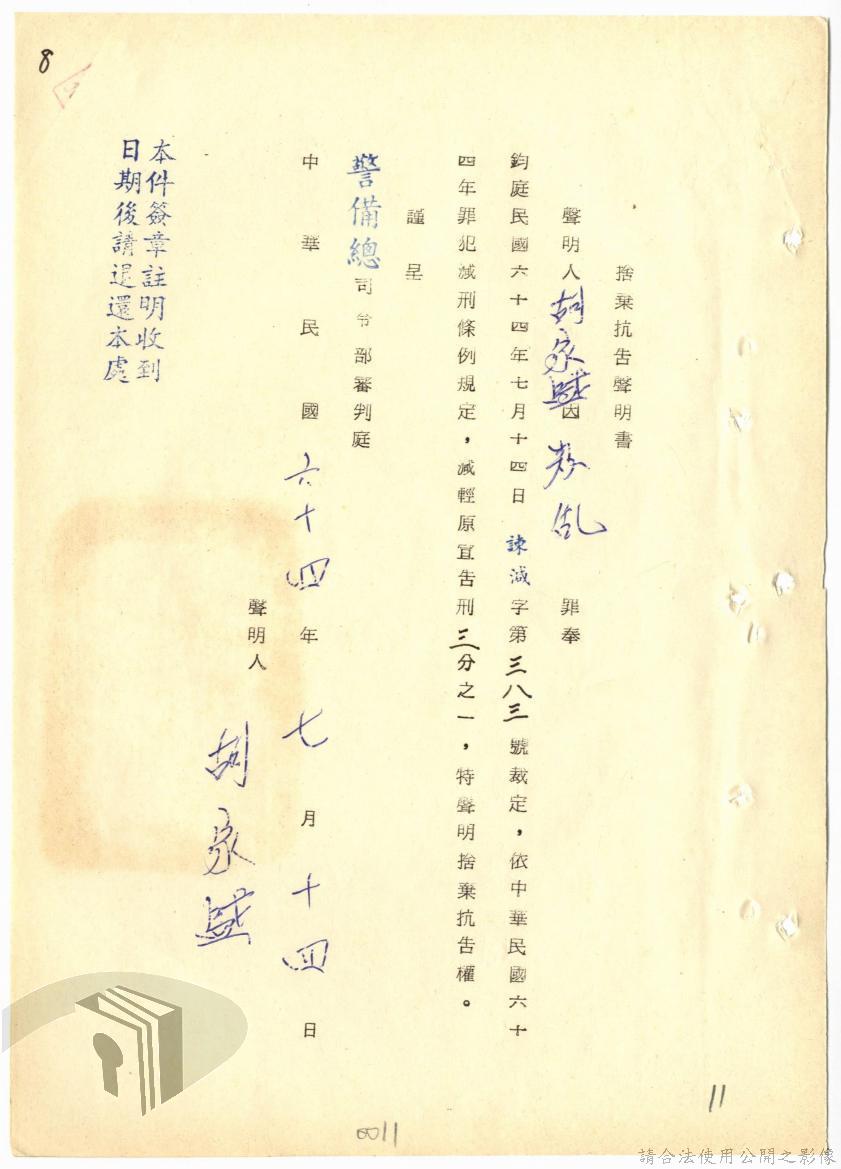 捨棄抗告聲明書
聲明人胡家盛因叛亂罪奉
鈞庭民國六十四年七月十四日諫減字第三八三號裁定，依中華民國六十
四年罪犯減刑條例規定，減輕原宣告刑三分之一，特聲明捨棄抗告權。
謹呈
警備總司令部審判庭
中華民國六十四年七月十四日
聲明人
胡家盛
本件簽章註明收到
日期後請退還本處
8
11
0011
請合法使用公開之影像